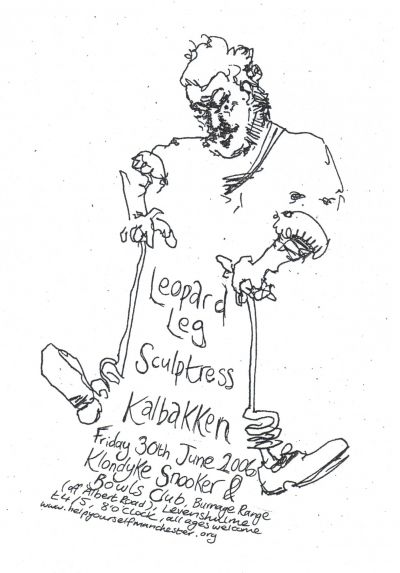 Leopard
Leg
Sculptress
Kalbakken
Friday 30th June 2006
Klondyke Snooker &
Bowls Club, Burnage Range
(off Albert Road), Levenshulme
£4/5, 8'o'clock, all ages welcome
www.helpyourselfmanchester.org